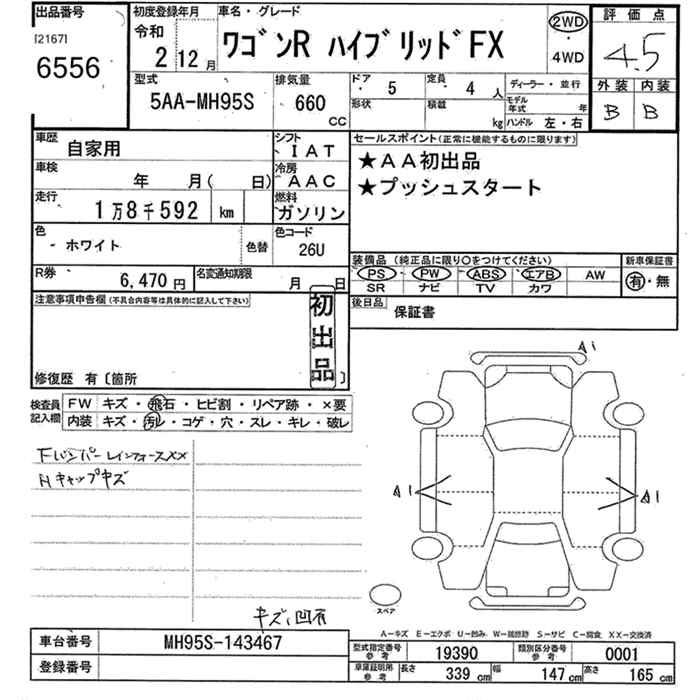 出品番号
[2167]
6556
初度登録年月
令和
2 12月
車名・グレード
ワゴンR ハイブリッドFX
2WD
4WD
評価点
4.5
外装 内装
B B
型式
5AA-MH95S
排気量
660
CC
ドア
5
形状
定員
4人
積載
kg
ディーラー・並行
モデル年式 年
ハンドル 左・右
車歴
自家用
シフト
IAT
車検
年 月( 日)
冷房
AAC
走行
1万8千592 km
燃料
ガソリン
色
ホワイト
色替
色コード
26U
R券
6,470円
名変通知期限
月 日
セールスポイント(正常に機能するものに限ります)
★AA初出品
★プッシュスタート
装備品(純正品に限り○をつけてください)
PS PW ABS エアB AW
SR ナビ TV カワ
新車保証書
有・無
後日品
保証書
注意事項申告欄(不具合内容等は具体的に記入して下さい)
初出品
修復歴 有〔箇所 〕
検査員記入欄
FW キズ・飛石・ヒビ割・リペア跡・×要
内装 キズ・汚レ・コゲ・穴・スレ・キレ・破レ
Fバンパーレインフォースxx
Hキャップキズ
キズ、凹有
A1
A1
A1
スペア
A-キズ E-エクボ U-凹み W-補修跡 S-サビ C-腐食 XX-交換済
車台番号
MH95S-143467
登録番号
型式指定番号
参考
19390
類別区分番号
参考
0001
車庫証明用
参考
長さ 339cm
幅 147cm
高さ 165cm